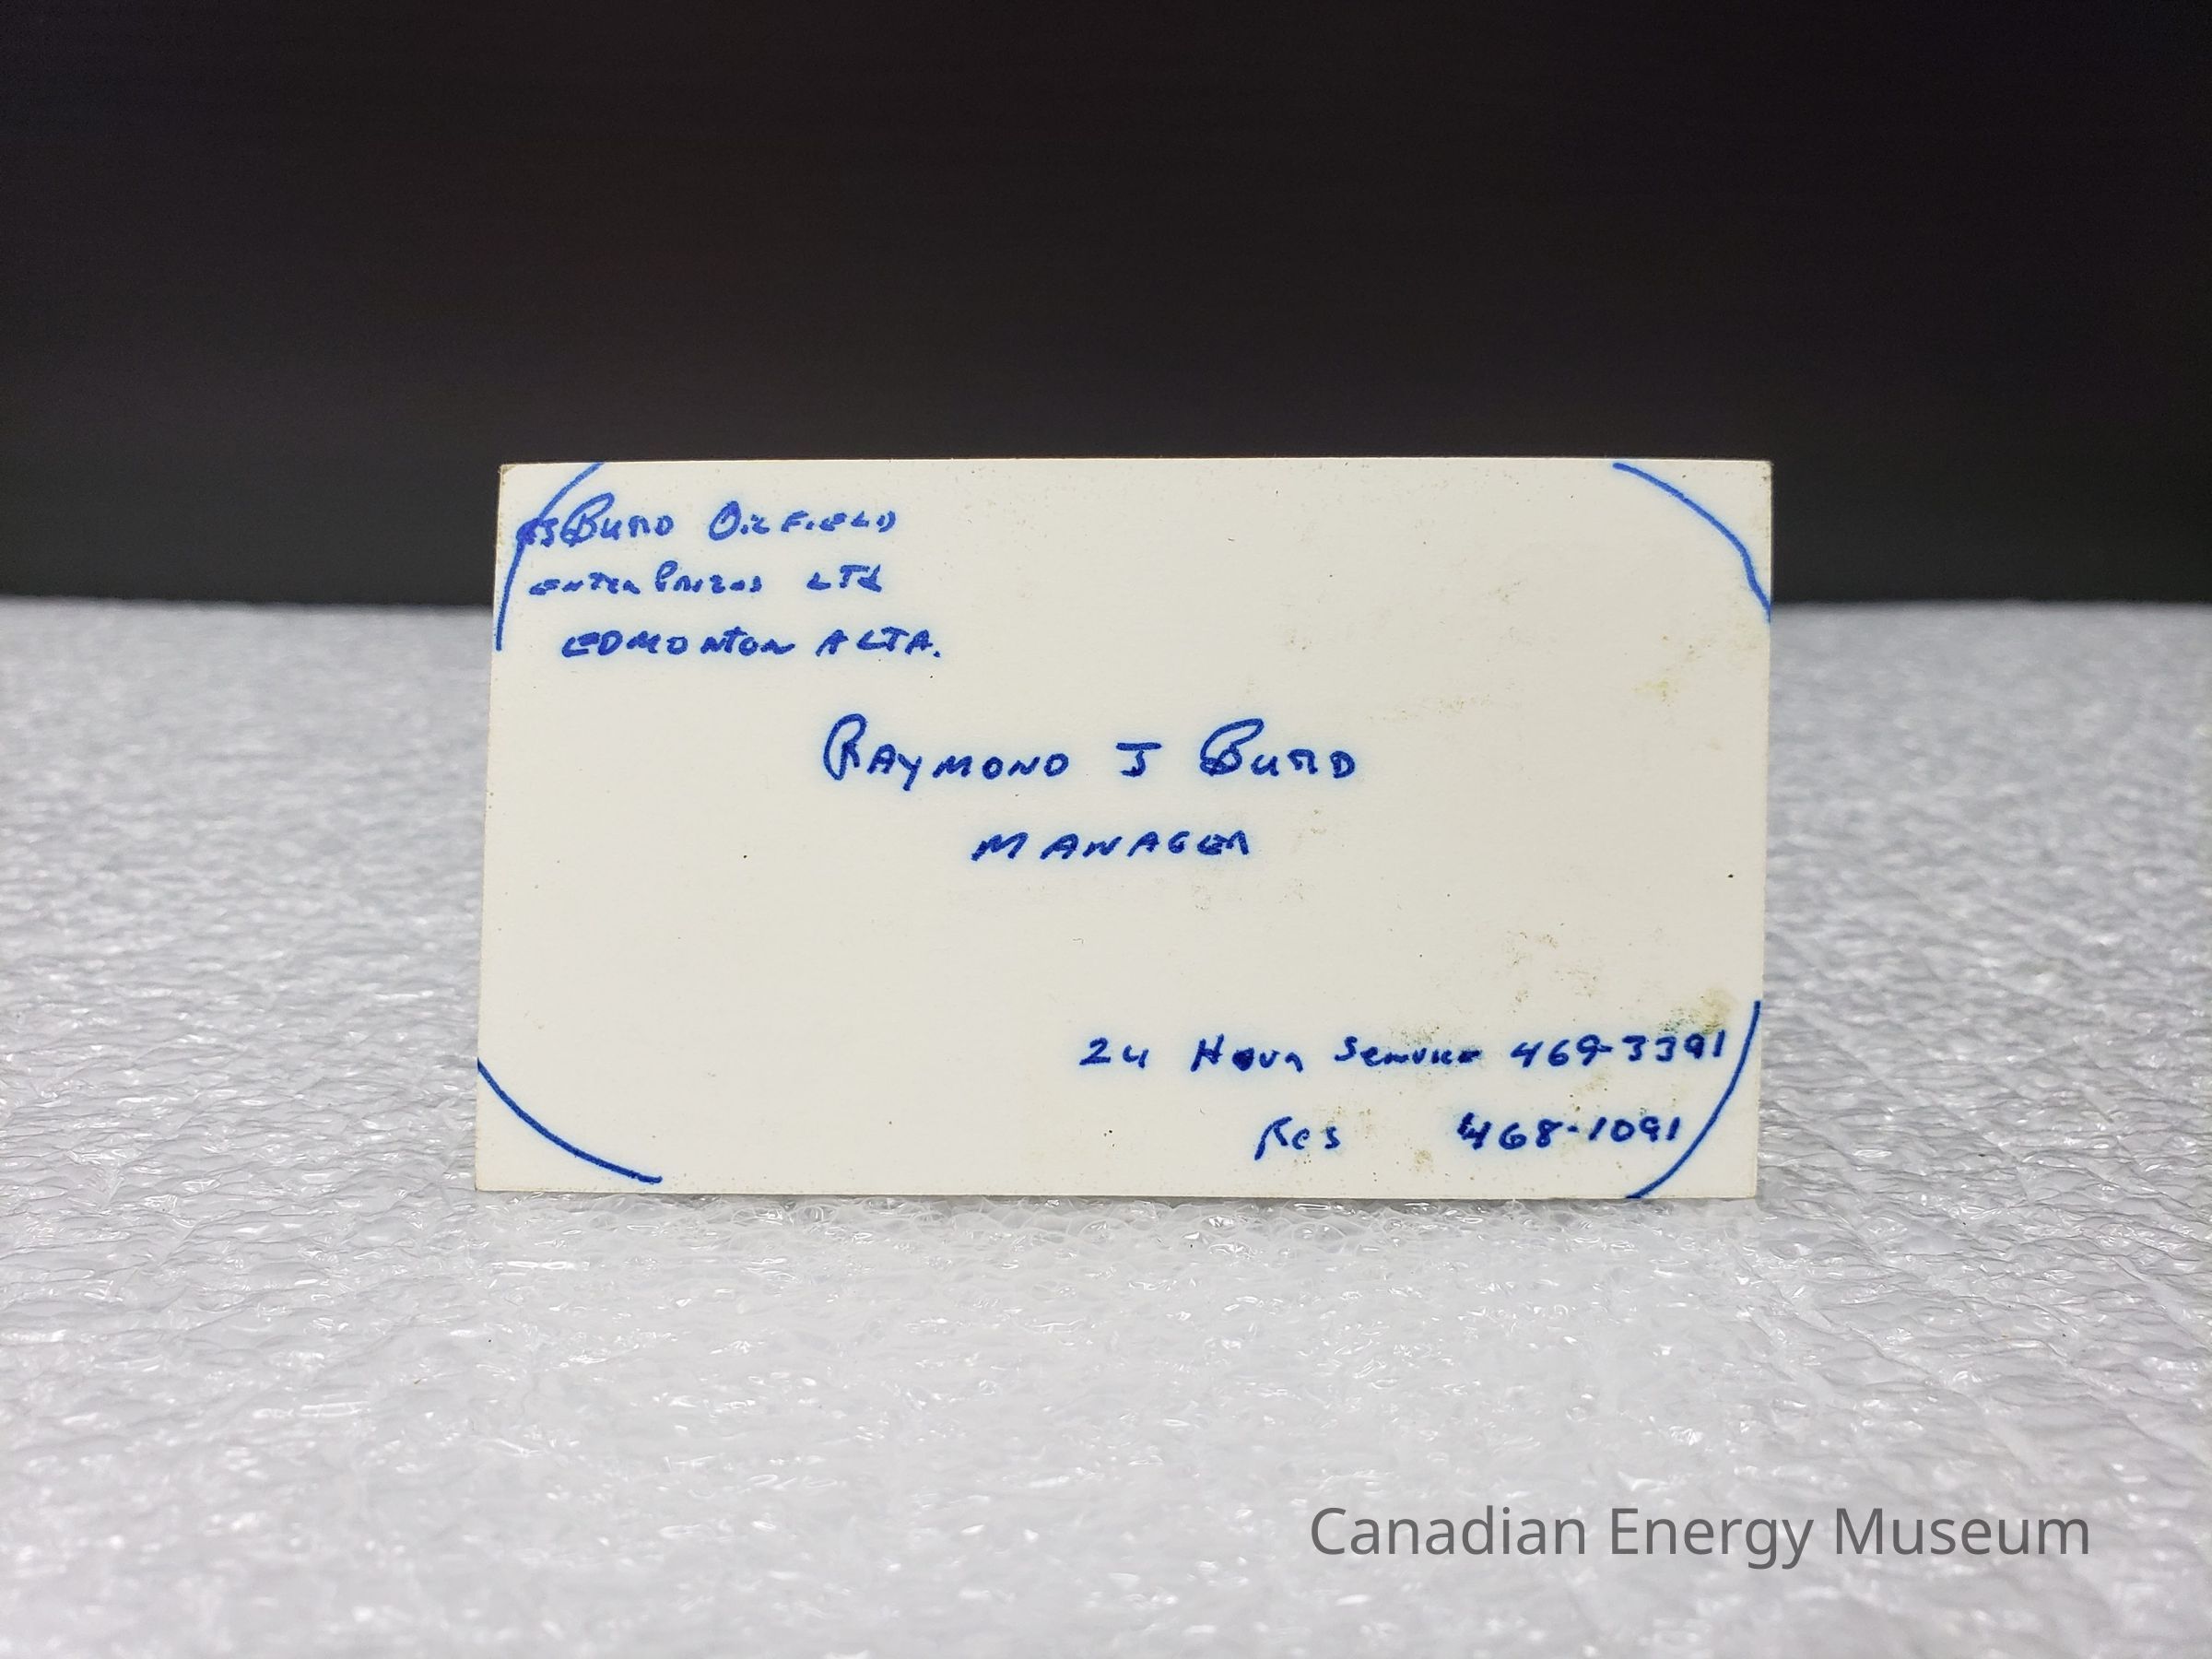 RJ Burd Oilfield
Enterprizes Ltd
Edmonton Alta.
Raymond J Burd
Manager
24 Hour Service 469-3391
Res 468-1091
Canadian Energy Museum